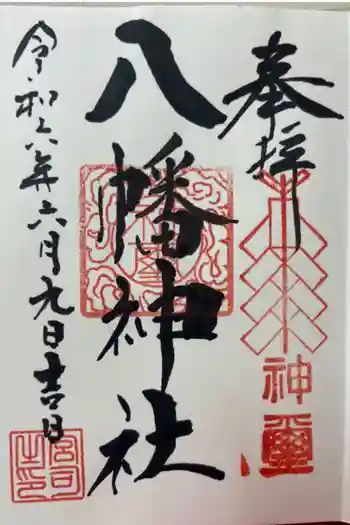 奉拝
八幡神社
令和六年六月九日吉日
神璽
宮司之印